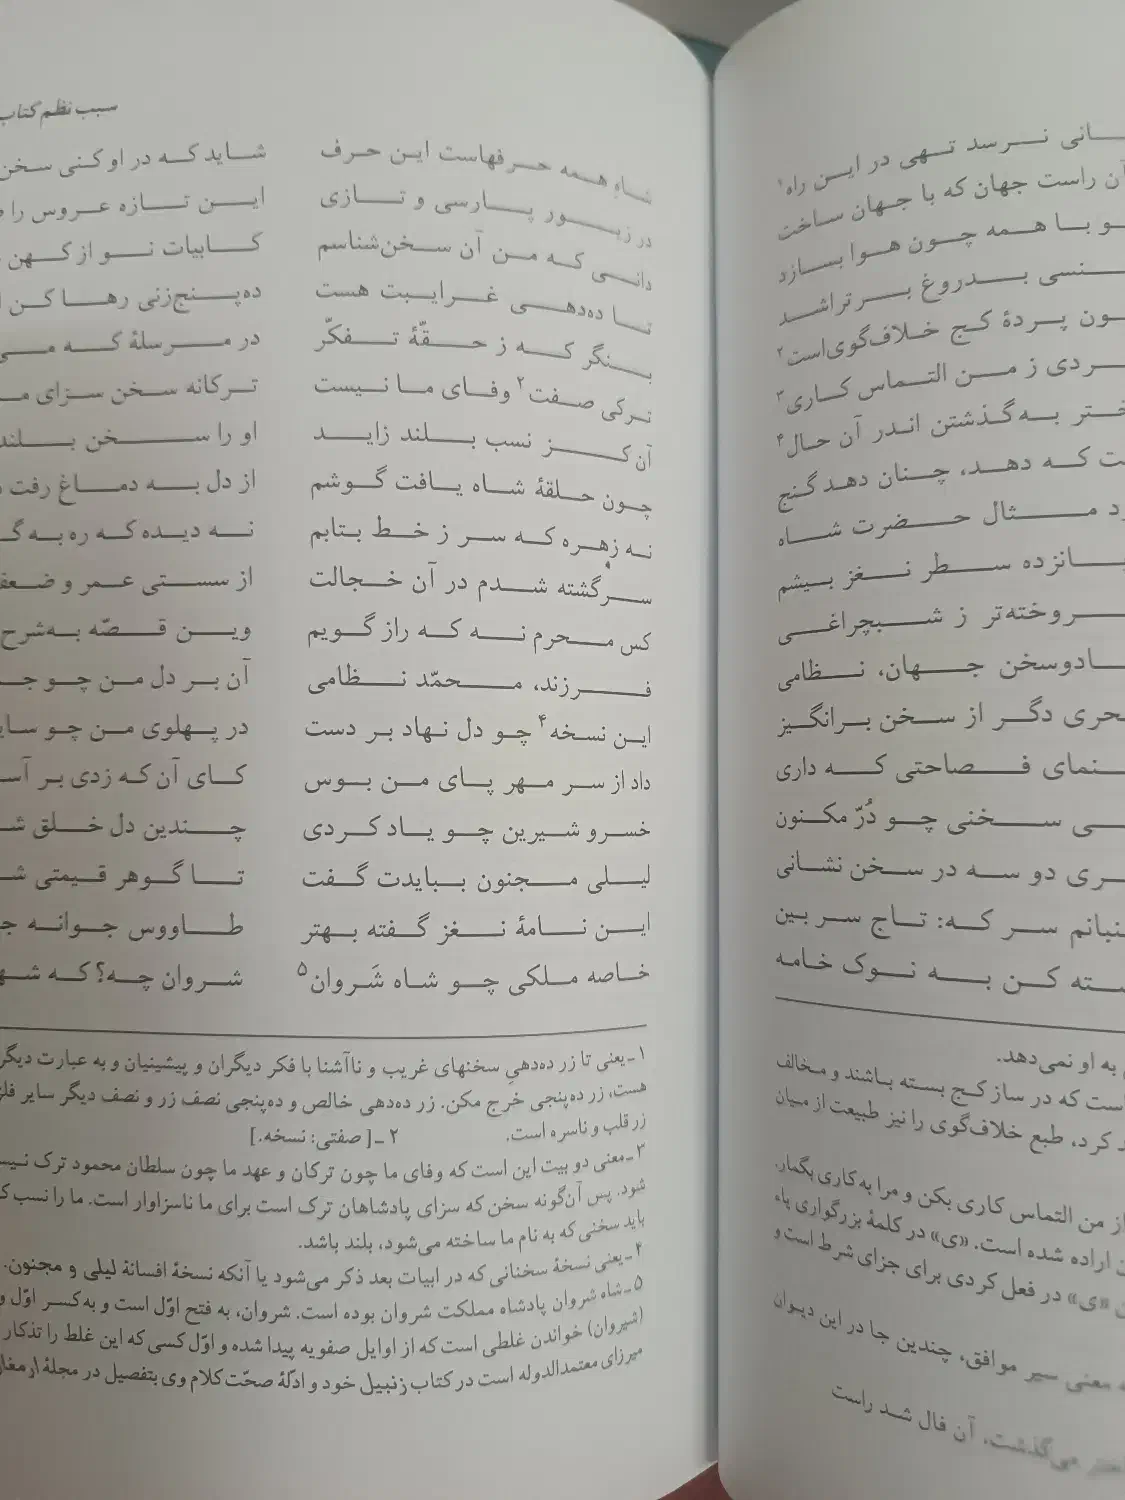 ـانی نرسد تهی در این راه۱
آن راست جهان که با جهان ساخت
ـو با همه چون هوا بسازد
ـنسی بدروغ برتراشد
ـون پردهٔ کج خلاف‌گوی‌است۲
ـردی ز من التماس کاری۳
ـختر به‌گذشتن اندر آن حال۴
ـت که دهد، چنان دهد گنج
ـد مثال حضرت شاه
ـانزده سطر نغز بیشم
ـروخته‌تر ز شبچراغی
ـادوسخن جهان، نظامی
ـحری دگر از سخن برانگیز
ـنمای فصاحتی که داری
ـی سخنی چو دُرّ مکنون
ـری دو سه در سخن نشانی
ـنبانم سر که: تاج سر بین
ـسته کن به نوک خامه
به او نمی‌دهد.
است که در ساز کج بسته باشند و مخالف
کرد، طبع خلاف‌گوی را نیز طبیعت از میان
از من التماس کاری بکن و مرا به‌کاری بگمار.
اراده شده است. «ی» در کلمهٔ بزرگواری پاء
«ی» در فعل کردی برای جزای شرط است و
معنی سیر موافق، چندین جا در این دیوان
می‌گذشت. آن فال شد راست
سبب نظم کتاب
شاهِ همه حرفهاست این حرف شاید که در او کنی سخن
در زیور پارسی و تازی این تازه عروس را
دانی که من آن سخن‌شناسم کابیات نو از کهن
تا ده‌دهی غرایبت هست ده‌پنج‌زنی رها کن
بنگر که ز حقّهٔ تفکّر در مرسلهٔ که
ترکی صفت۲ وفای ما نیست ترکانه سخن سزای
آن کز نسب بلند زاید او را سخن بلند
چون حلقهٔ شاه یافت گوشم از دل به دماغ رفت
نه زهره که سر ز خط بتابم نه دیده که ره به
سرگشته شدم در آن خجالت از سستی عمر و
کس محرم نه که راز گویم وین قصّه به‌شرح
فرزند، محمّد نظامی آن بر دل من چو
این نسخه۴ چو دل نهاد بر دست در پهلوی من چو
داد از سر مهر پای من بوس کای آن که زدی بر
خسرو شیرین چو یاد کردی چندین دل خلق
لیلی مجنون ببایدت گفت تا گوهر قیمتی
این نامهٔ نغز گفته بهتر طاووس جوانه
خاصه ملکی چو شاه شَروان۵ شروان چه؟ که
۱ـ یعنی تا زر ده‌دهیِ سخنهای غریب و ناآشنا با فکر دیگران و پیشینیان و به عبارت دیگر
هست، زر ده‌پنجی خرج مکن. زر ده‌دهی خالص و ده‌پنجی نصف زر و نصف دیگر سایر
زر قلب و ناسره است. ۲ـ [ صفتی: نسخه.]
۳ـ معنی دو بیت این است که وفای ما چون ترکان و عهد ما چون سلطان محمود ترک
شود. پس آن‌گونه سخن که سزای پادشاهان ترک است برای ما ناسزاوار است. ما را نسب
باید سخنی که به نام ما ساخته می‌شود، بلند باشد.
۴ـ یعنی نسخهٔ سخنانی که در ابیات بعد ذکر می‌شود یا آنکه نسخهٔ افسانهٔ لیلی و مجنون.
۵ـ شاه شروان پادشاه مملکت شروان بوده است. شروان، به فتح اوّل است و به‌کسر اوّل و
(شیروان) خواندن غلطی است که از اوایل صفویه پیدا شده و اوّل کسی که این غلط را تذکار
میرزای معتمدالدوله است در کتاب زنبیل خود و ادلّهٔ صحّت کلام وی بتفصیل در مجلهٔ ارمغان